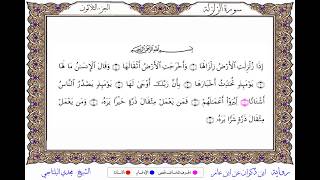 سورة الزلزلة
الجزء الثلاثون
بسم الله الرحمن الرحيم
إِذَا زُلْزِلَتِ الْأَرْضُ زِلْزَالَهَا ۝ وَأَخْرَجَتِ الْأَرْضُ أَثْقَالَهَا ۝ وَقَالَ الْإِنسَٰنُ مَا لَهَا
۝ يَوْمَئِذٍ تُحَدِّثُ أَخْبَارَهَا ۝ بِأَنَّ رَبَّكَ أَوْحَىٰ لَهَا ۝ يَوْمَئِذٍ يَصْدُرُ النَّاسُ
أَشْتَاتًا ۝ لِّيُرَوْا أَعْمَٰلَهُمْ ۝ فَمَن يَعْمَلْ مِثْقَالَ ذَرَّةٍ خَيْرًا يَرَهُ ۝ وَمَن يَعْمَلْ
مِثْقَالَ ذَرَّةٍ شَرًّا يَرَهُ ۝
رواية ابن ذكوان عن ابن عامر
الإمالة
الشيخ